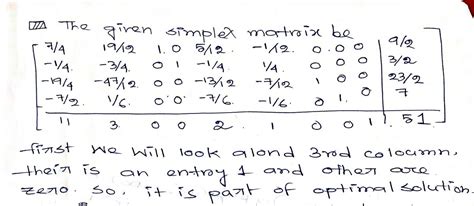 The given simplex matroix be
7/4 19/12 1. 0 5/12. -1/12. 0. 0. 0 9/2
-1/4. -3/4. 0 1 -1/4. 1/4. 0 0 0 3/2
-19/4 -47/12 0 0 -13/12 -7/12 1 0 0 23/2
-7/2. 1/6. 0. 0. -7/6. -1/6. 0 1. 0 7
11 3 0 0 2. 1 0 0 1 51
first we will look alond 3rod coloumn,
their is an entroy 1 and other are
zero. So, it is part of optimal solution.